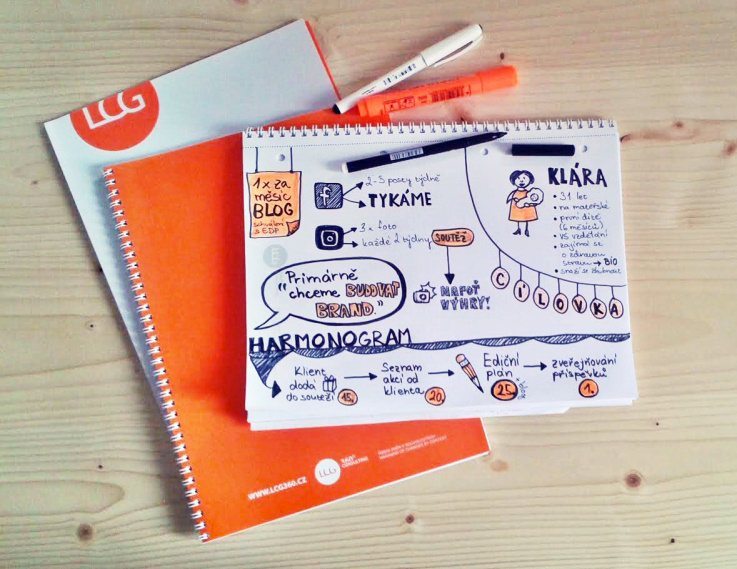 LCG
1x za
měsíc
BLOG
schválení
s EDP
2-3 posty týdně
TYKÁME
3x foto
každé 2 týdny
SOUTĚŽ
NAFOŤ
VÝHRY!
Primárně
"chceme BUDOVAT
BRAND."
KLÁRA
31 let
na mateřské
první dítě
(6 měsíců)
VŠ vzdělání
zajímá se
o zdravou
stravu → BIO
snaží se zhubnout
CÍLOVKA
HARMONOGRAM
Klient
dodá
do soutěží
15.
Seznam
akcí od
klienta
20.
Ediční
plán
25.
zveřejňování
příspěvků
1.
WWW.LCG360.CZ
LCG
360°
CONSULTING